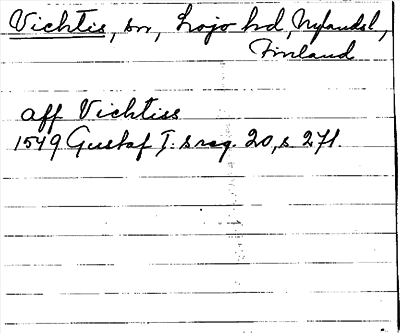 Vichtis, sn, Lojo hd, Nylandsl,
Finland
aff Vichtiss
1549 Gustaf I:s reg. 20, s 271.